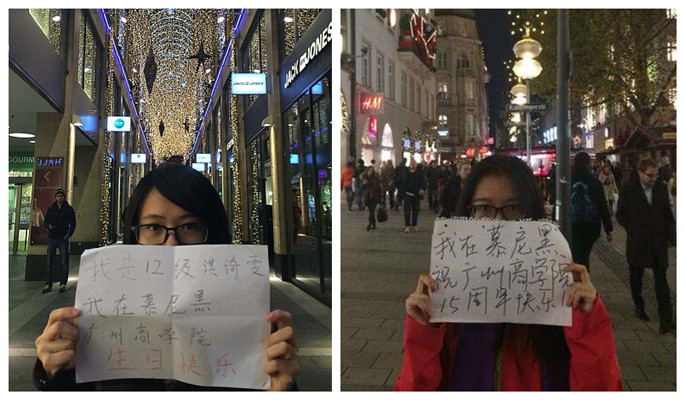 JACK & JONES
JACK JONES
我是12级洪绮雯
我在慕尼黑
广州商学院
生日快乐
H&M
我在慕尼黑
祝广州商学院
15周年快乐！